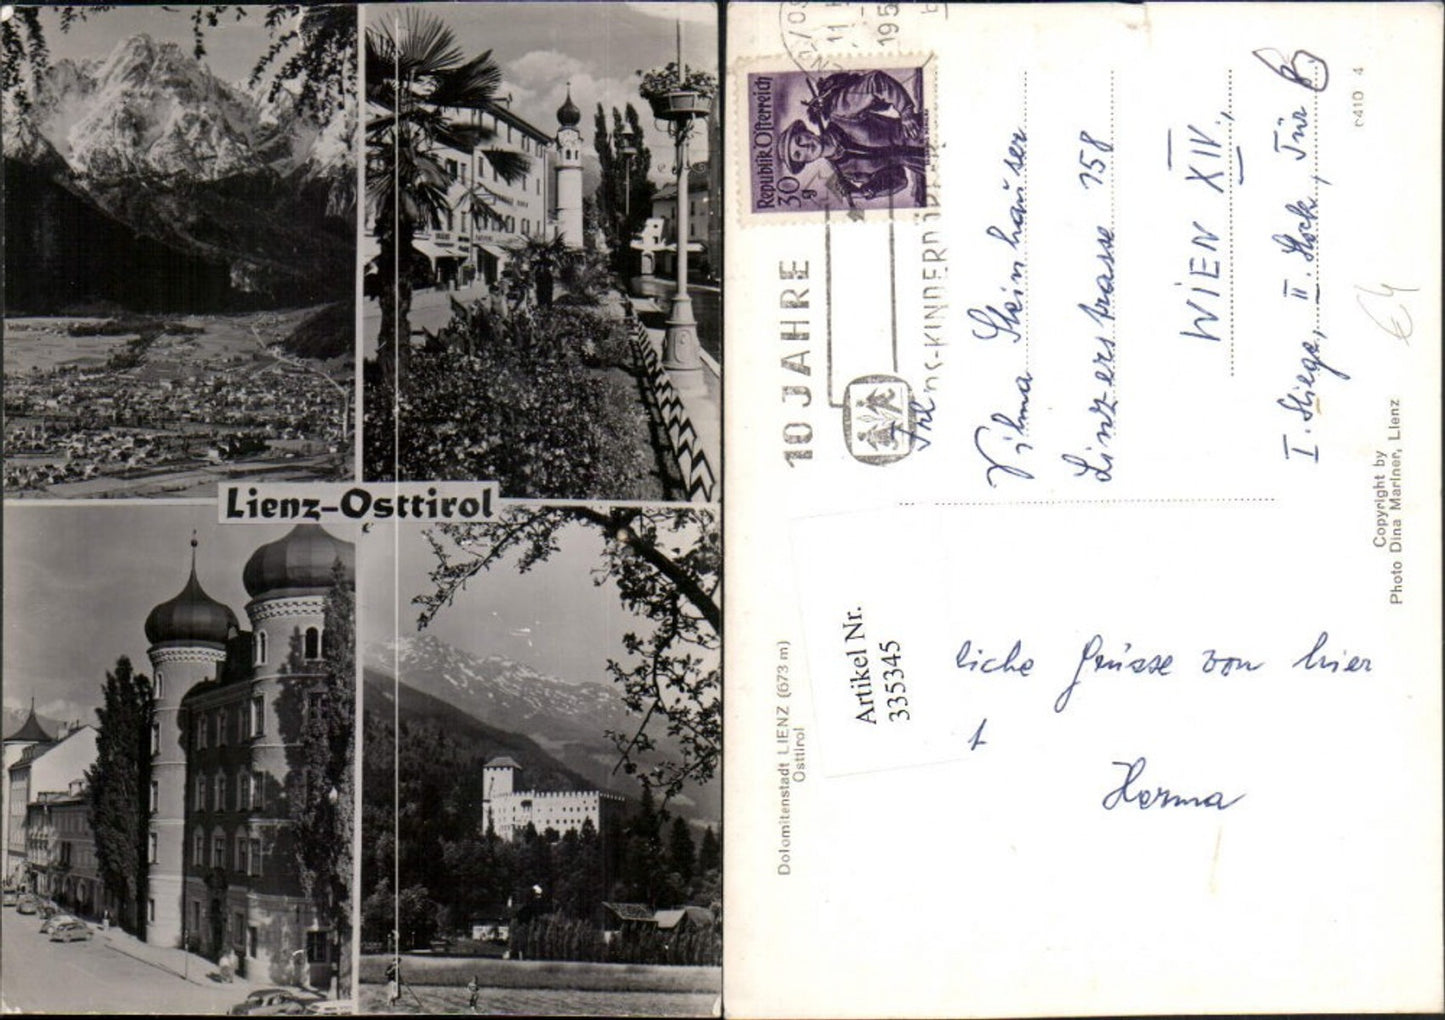 Lienz-Osttirol
Republik Österreich
30 g
10 JAHRE
SOS-KINDERDORF
Frl.
Vilma Steinhauser
Linzerstrasse 158
WIEN XIV.,
I. Stiege, II. Stock, Tür
6410 4
Artikel Nr.
335345
liche Grüsse von hier
t
Herma
Dolomitenstadt LIENZ (673 m)
Osttirol
Copyright by
Photo Dina Mariner, Lienz